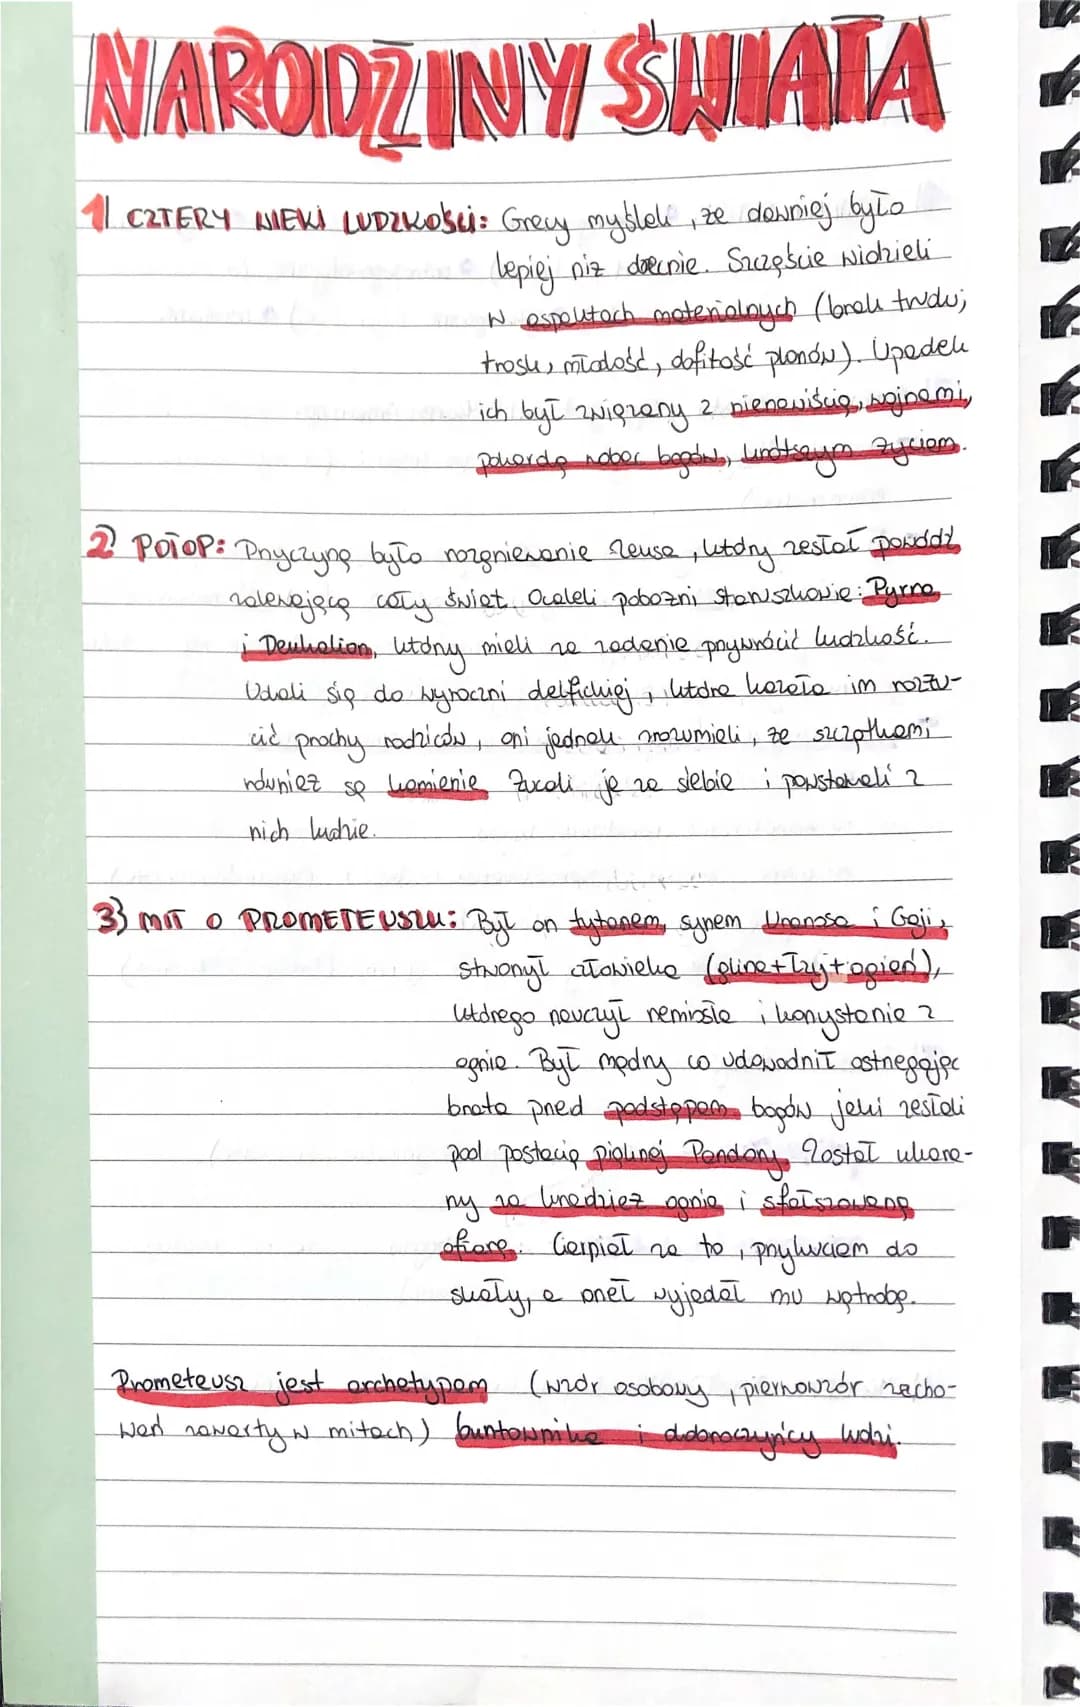 NARODZINY ŚWIATA
1) CZTERY WIEKI LUDZKOŚCI: Grecy myśleli, że dawniej było
lepiej niż obecnie. Szczęście widzieli
w aspektach materialnych (brak trudu,
trosk, młodość, obfitość plonów). Upadek
ich był związany z nienawiścią, wojnami,
pohardą wobec bogów, krótszym życiem.
2) POTOP: Przyczyną było rozgniewanie Zeusa, który zesłał powódź
zalewającą cały świat. Ocaleli pobożni staruszkowie: Pyrra
i Deukalion, którzy mieli za zadanie przywrócić ludzkość.
Udali się do wyroczni delfickiej, która kazała im rozrzu-
cić prochy rodziców, oni jednak zrozumieli, że szczątkami
również są kamienie. Rzucali je za siebie i powstawali z
nich ludzie.
3) MIT O PROMETEUSZU: Był on tytanem, synem Uranosa i Gaji,
stworzył człowieka (glina+łzy+ogień),
którego nauczył rzemiosła i korzystania z
ognia. Był mądry co udowodnił ostrzegając
brata przed podstępem bogów jaki zesłali
pod postacią pięknej Pandory. Został ukara-
ny za kradzież ognia i sfałszowaną
ofiarę. Cierpiał za to, przykuciem do
skały, a orzeł wyjadał mu wątrobę.
Prometeusz jest archetypem (wzór osobowy, pierwowzór zacho-
wań zawarty w mitach) buntownika i dobroczyńcy ludzi.